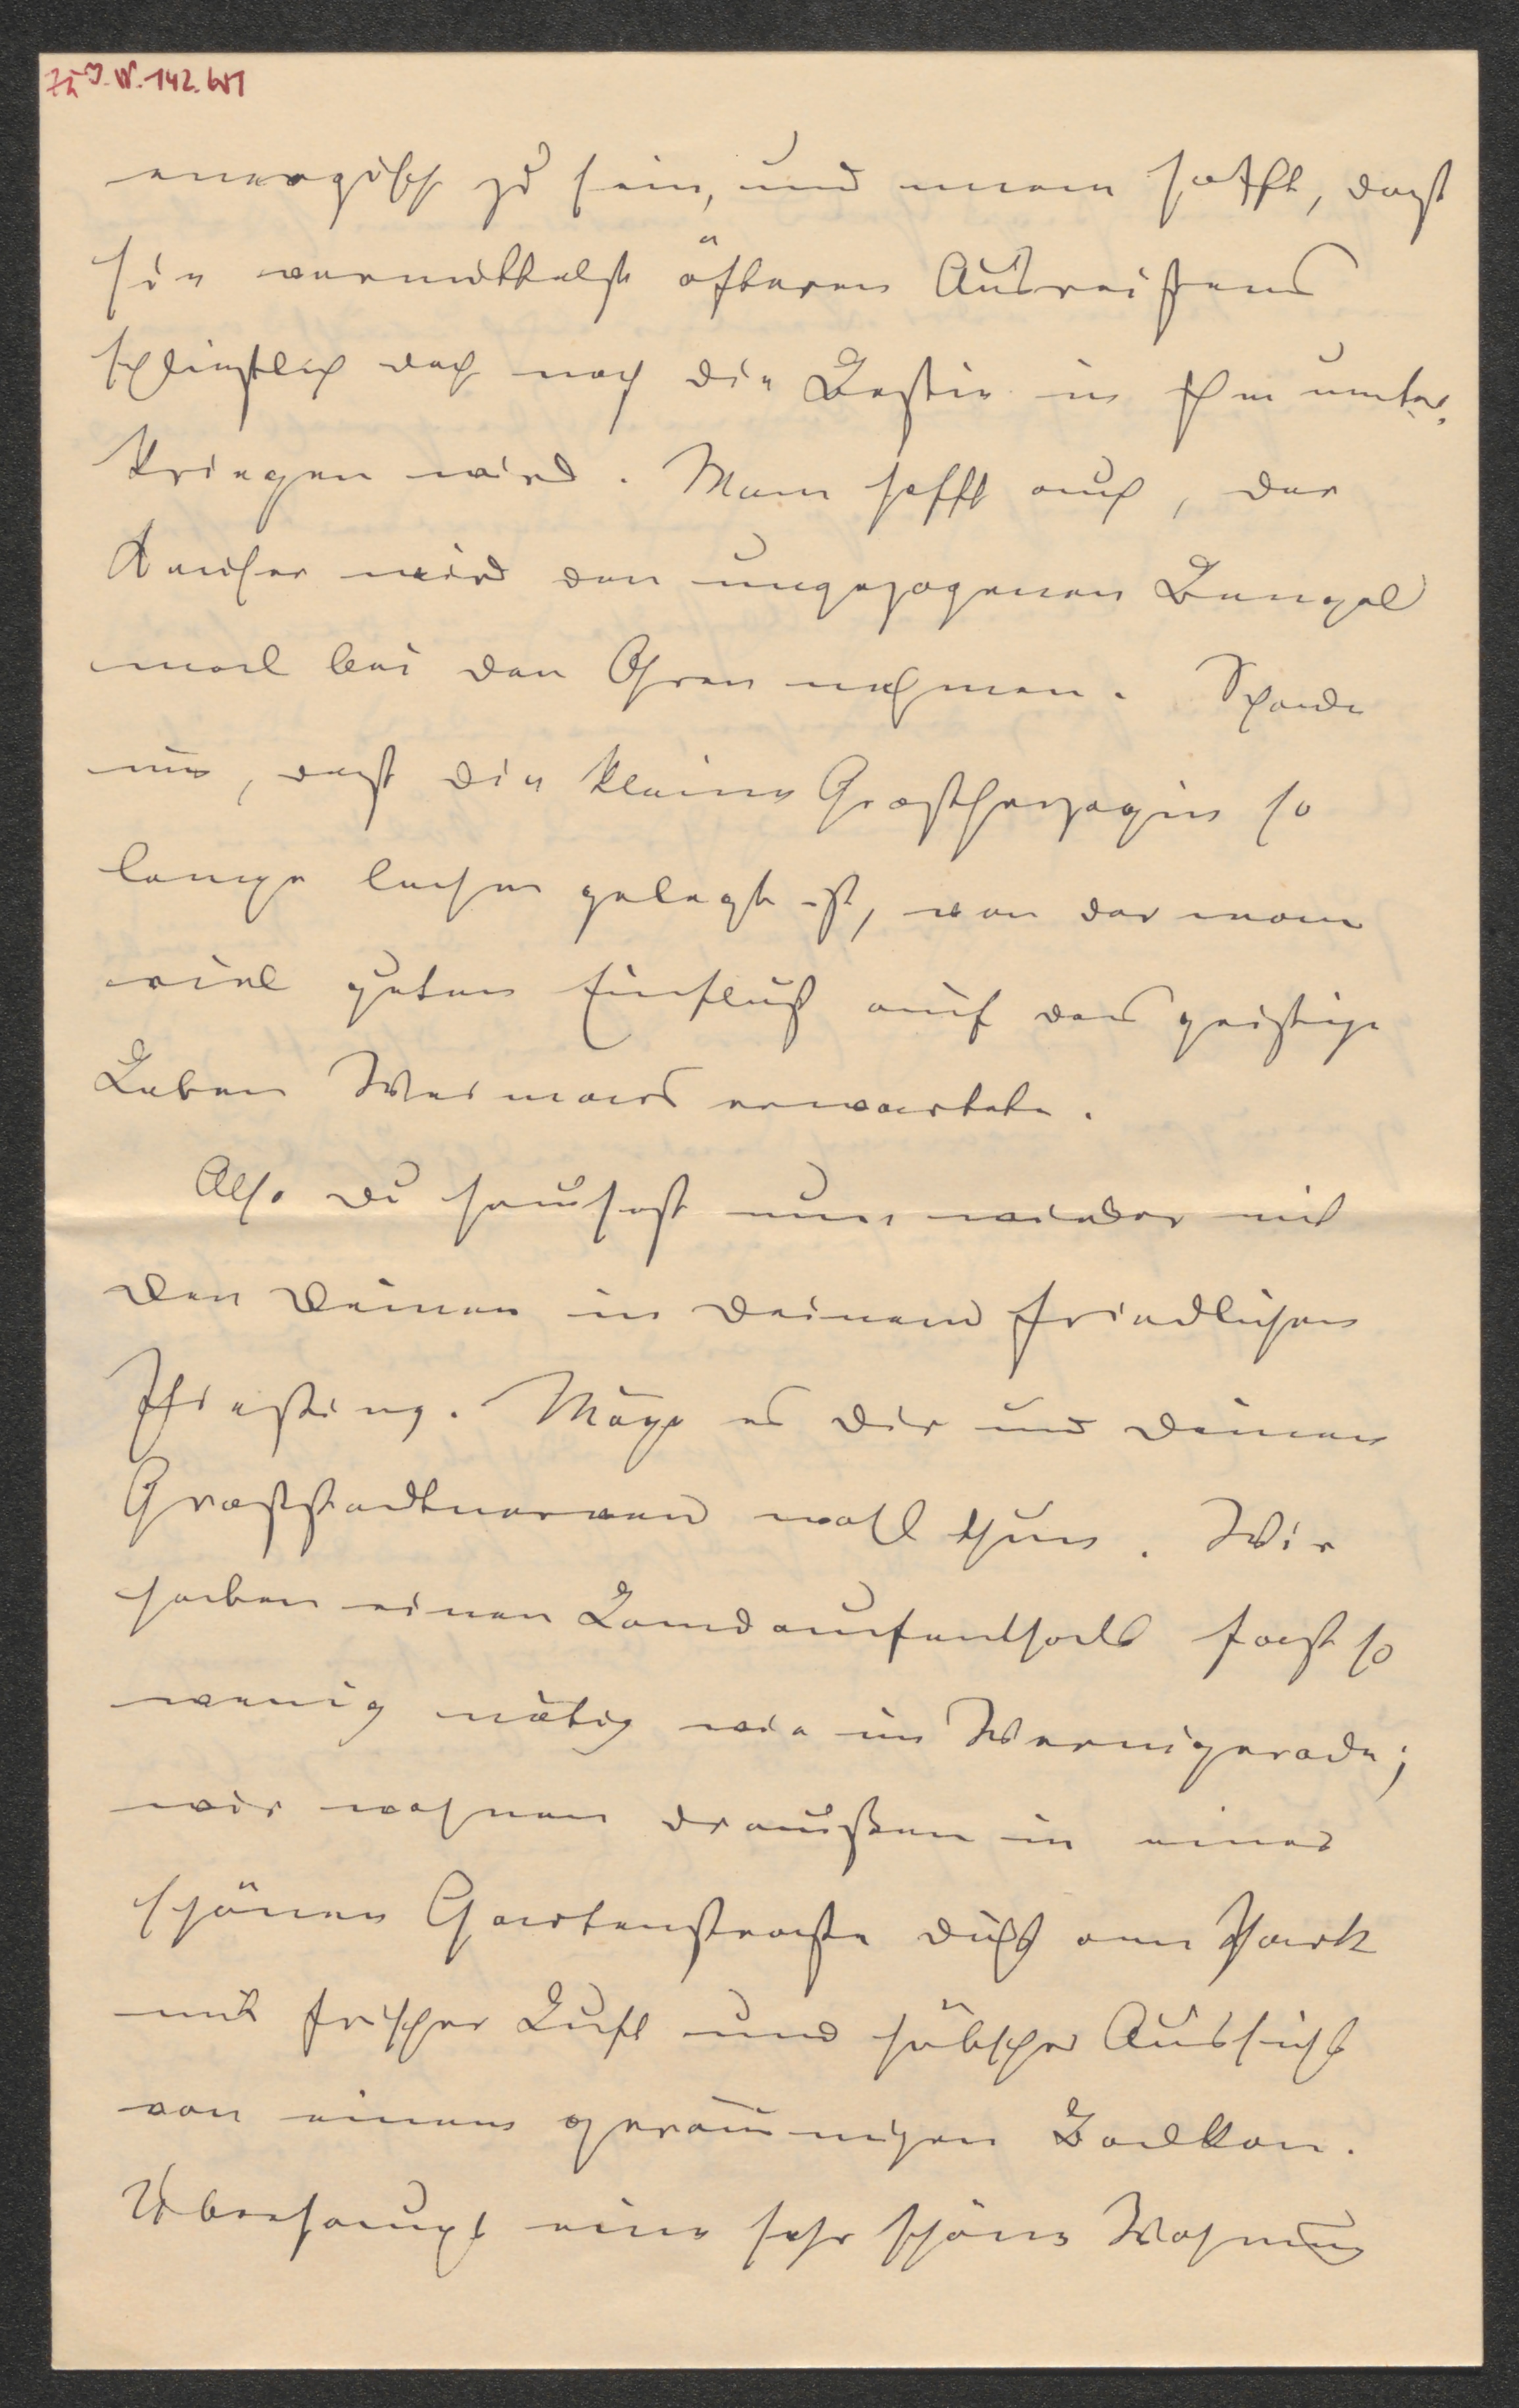 energisch zu sein, und man hofft, dass
sie vermittelst öfteren Ausreißens
schliesslich doch noch die Bestie in ihm unter-
kriegen wird. Man hofft auch, der
Kaiser wird den ungezogenen Bengel
mal bei den Ohren nehmen. Schade
nur, dass die kleine Grossherzogin so
lange lahm gelegt ist, von der man
viel guten Einfluß auf das geistige
Leben Weimars erwartete.
Also du hausest nun wieder mit
den Deinen in deinem friedlichen
Piesting. Möge es dir und deinen
Grossstadtnerven wohl thun. Wir
haben einen Landaufenthalt fast so
wenig nötig wie in Wernigerode;
wir wohnen draußen in einer
schönen Gartenstrasse dicht am Park
mit frischer Luft und hübscher Aussicht
von einem geräumigen Balkon.
Überhaupt eine sehr schöne Wohnung